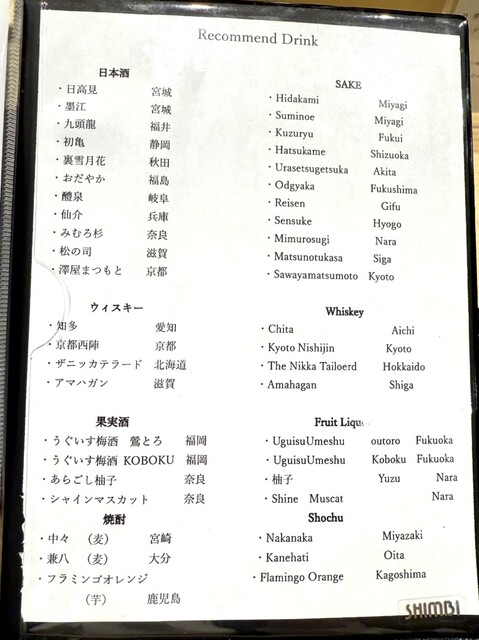 Recommend Drink
日本酒
・日高見 宮城
・墨江 宮城
・九頭龍 福井
・初亀 静岡
・裏雪月花 秋田
・おだやか 福島
・醴泉 岐阜
・仙介 兵庫
・みむろ杉 奈良
・松の司 滋賀
・澤屋まつもと 京都
SAKE
・Hidakami Miyagi
・Suminoe Miyagi
・Kuzuryu Fukui
・Hatsukame Shizuoka
・Urasetsugetsuka Akita
・Odgyaka Fukushima
・Reisen Gifu
・Sensuke Hyogo
・Mimurosugi Nara
・Matsunotukasa Siga
・Sawayamatsumoto Kyoto
ウィスキー
・知多 愛知
・京都西陣 京都
・ザニッカテラード 北海道
・アマハガン 滋賀
Whiskey
・Chita Aichi
・Kyoto Nishijin Kyoto
・The Nikka Tailoerd Hokkaido
・Amahagan Shiga
果実酒
・うぐいす梅酒 鶯とろ 福岡
・うぐいす梅酒 KOBOKU 福岡
・あらごし柚子 奈良
・シャインマスカット 奈良
Fruit Liqu
・UguisuUmeshu outoro Fukuoka
・UguisuUmeshu Koboku Fukuoka
・柚子 Yuzu Nara
・Shine Muscat Nara
焼酎
・中々 （麦） 宮崎
・兼八 （麦） 大分
・フラミンゴオレンジ
（芋） 鹿児島
Shochu
・Nakanaka Miyazaki
・Kanehati Oita
・Flamingo Orange Kagoshima
SHIMBI